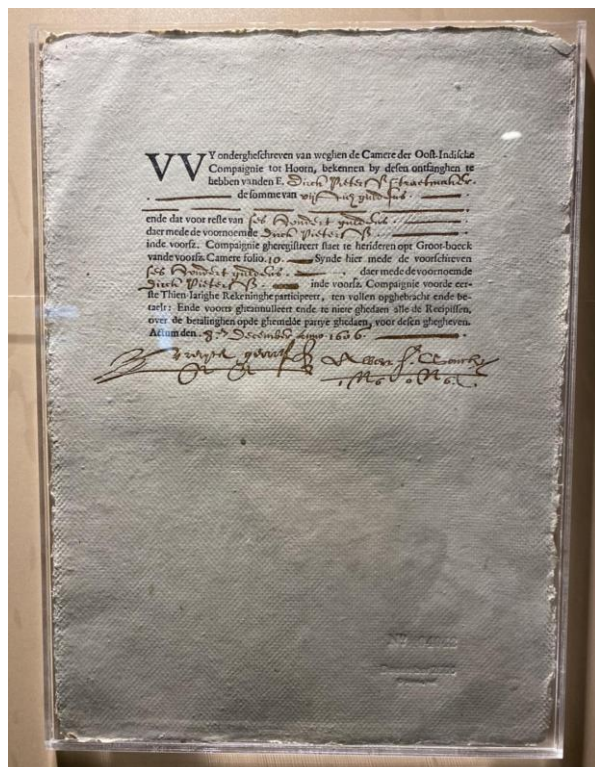 VVY ondergheschreven van weghen de Camere der Oost-Indische
Compaignie tot Hoorn, bekennen by desen ontfanghen te
hebben vanden E. Dirck Pieters straetmaker.
de somme van
ende dat voor reste van ses hondert guldens
daer mede de voornoemde Dirck Pieters
inde voorsz. Compaignie gheregistreert staet te herideren opt Groot-boeck
vande voorsz. Camere folio. 10. Synde hier mede de voorschreven
ses hondert guldens. daer mede de voornoemde
Dirck Pieters inde voorsz. Compaignie voorde eer-
ste Thien-Iarighe Rekeninghe participeert, ten vollen opghebracht ende be-
taelt: Ende voorts gheannulleert ende te niete ghedaen alle de Recipissen,
over de betalinghen opde ghemelde partye ghedaen, voor desen ghegheven.
Actum den. 8en December Anno. 1606.